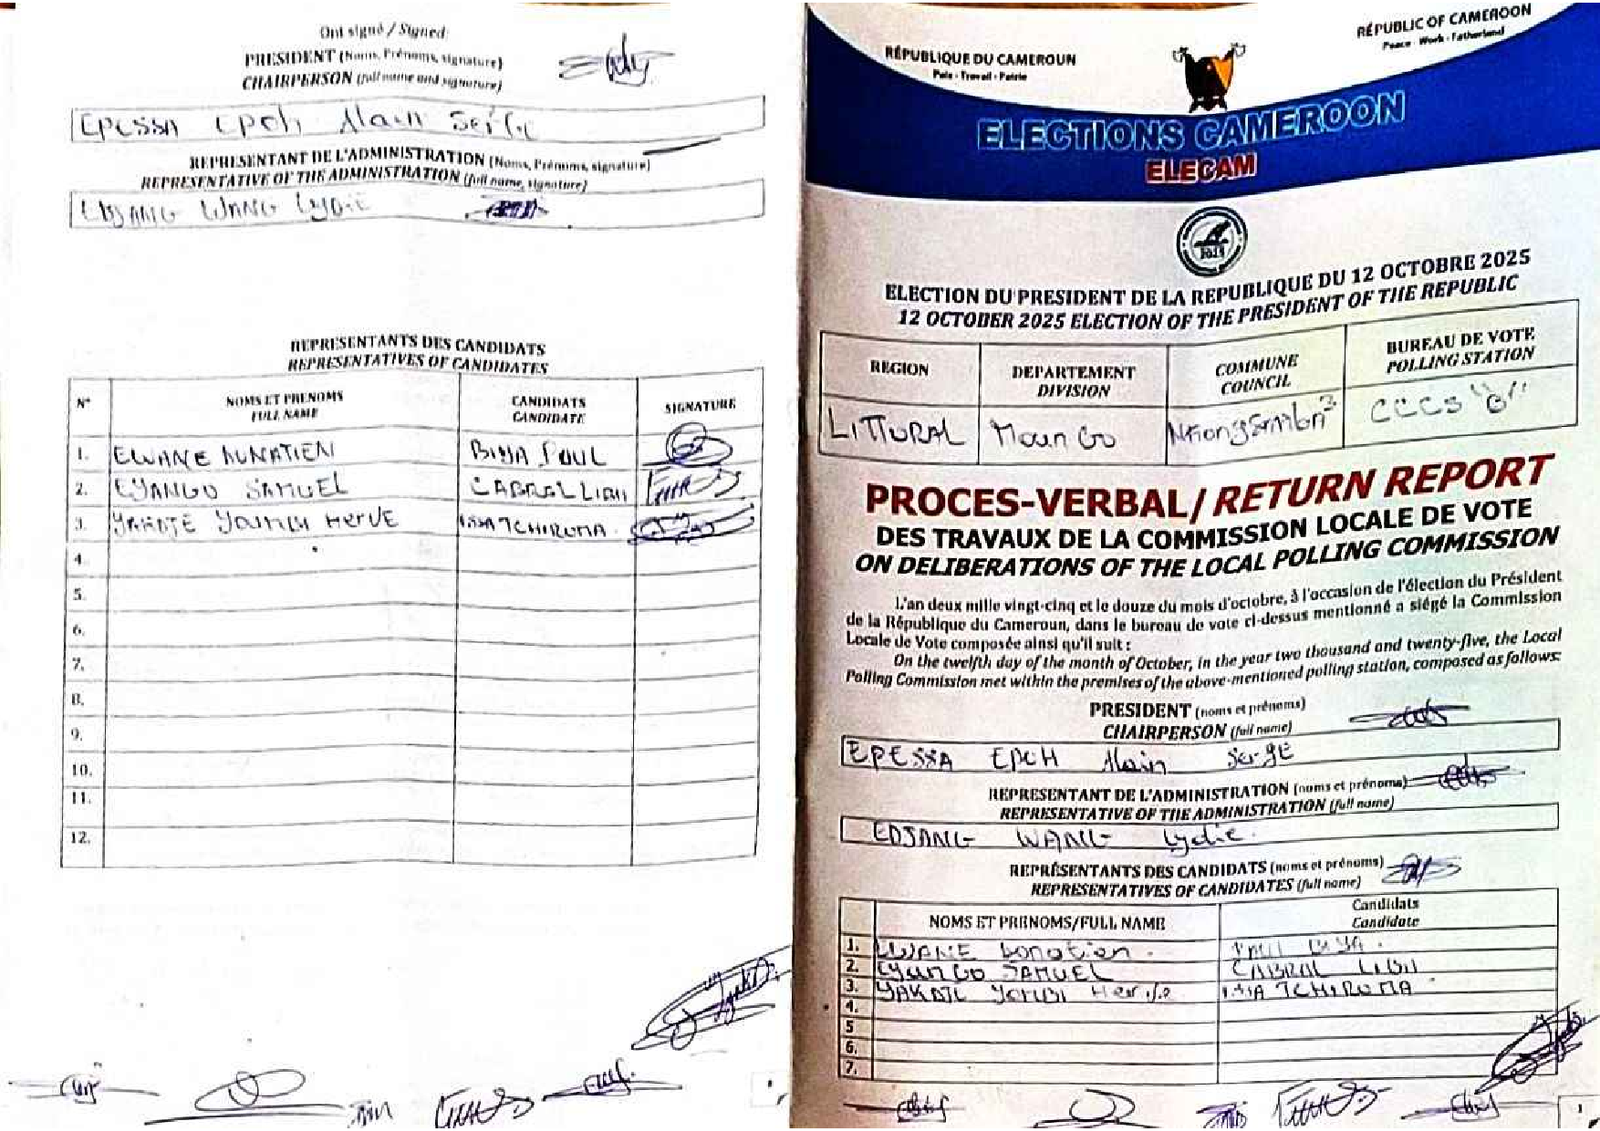 Ont signé / Signed:
PRESIDENT (Noms, Prénoms, signature)
CHAIRPERSON (full name and signature)
EPESSA EPOH Alain Serge
REPRESENTANT DE L'ADMINISTRATION (Noms, Prénoms, signature)
REPRESENTATIVE OF THE ADMINISTRATION (full name, signature)
EDJANG WANG Lydie
REPRESENTANTS DES CANDIDATS
REPRESENTATIVES OF CANDIDATES
N° NOMS ET PRENOMS FULL NAME CANDIDATS CANDIDATE SIGNATURE
1. EWANE DONATIEN BIYA PAUL
2. EYANGO SAMUEL CABRAL LIBII
3. YOUMBI HERVE ISSA TCHIROMA
4.
5.
6.
7.
8.
9.
10.
11.
12.
RÉPUBLIQUE DU CAMEROUN
Paix - Travail - Patrie
RÉPUBLIC OF CAMEROON
Peace - Work - Fatherland
ELECTIONS CAMEROON
ELECAM
2025
ELECTION DU PRESIDENT DE LA REPUBLIQUE DU 12 OCTOBRE 2025
12 OCTOBER 2025 ELECTION OF THE PRESIDENT OF THE REPUBLIC
REGION DEPARTEMENT DIVISION COMMUNE COUNCIL BUREAU DE VOTE POLLING STATION
LITTORAL Moungo Nkongsamba 3 CCCS "B"
PROCES-VERBAL / RETURN REPORT
DES TRAVAUX DE LA COMMISSION LOCALE DE VOTE
ON DELIBERATIONS OF THE LOCAL POLLING COMMISSION
L'an deux mille vingt-cinq et le douze du mois d'octobre, à l'occasion de l'élection du Président
de la République du Cameroun, dans le bureau de vote ci-dessus mentionné a siégé la Commission
Locale de Vote composée ainsi qu'il suit :
On the twelfth day of the month of October, in the year two thousand and twenty-five, the Local
Polling Commission met within the premises of the above-mentioned polling station, composed as follows:
PRESIDENT (noms et prénoms)
CHAIRPERSON (full name)
EPESSA EPOH Alain Serge
REPRESENTANT DE L'ADMINISTRATION (noms et prénoms)
REPRESENTATIVE OF THE ADMINISTRATION (full name)
EDJANG WANG Lydie
REPRÉSENTANTS DES CANDIDATS (noms et prénoms)
REPRESENTATIVES OF CANDIDATES (full name)
NOMS ET PRENOMS/FULL NAME Candidats Candidate
1. EWANE Donatien PAUL BIYA
2. EYANGO SAMUEL CABRAL LIBII
3. YOUMBI Herve ISSA TCHIROMA
4.
5
6.
7.
1